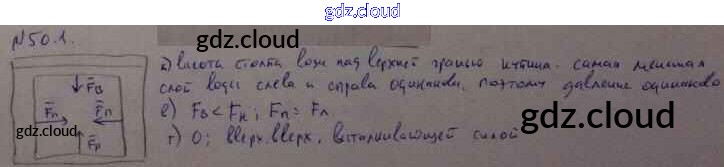 gdz.cloud
№50.1.
gdz.cloud
а) высота столба воды над верхней гранью кубика самая меньшая
слой воды слева и справа одинаковы, поэтому давление одинаково
в) Fв < Fн; Fп = Fл
г) 0; вверх, вверх, выталкивающей силой
F̄в
F̄л F̄п
F̄н
gdz.cloud
gdz.cloud
gdz.cloud